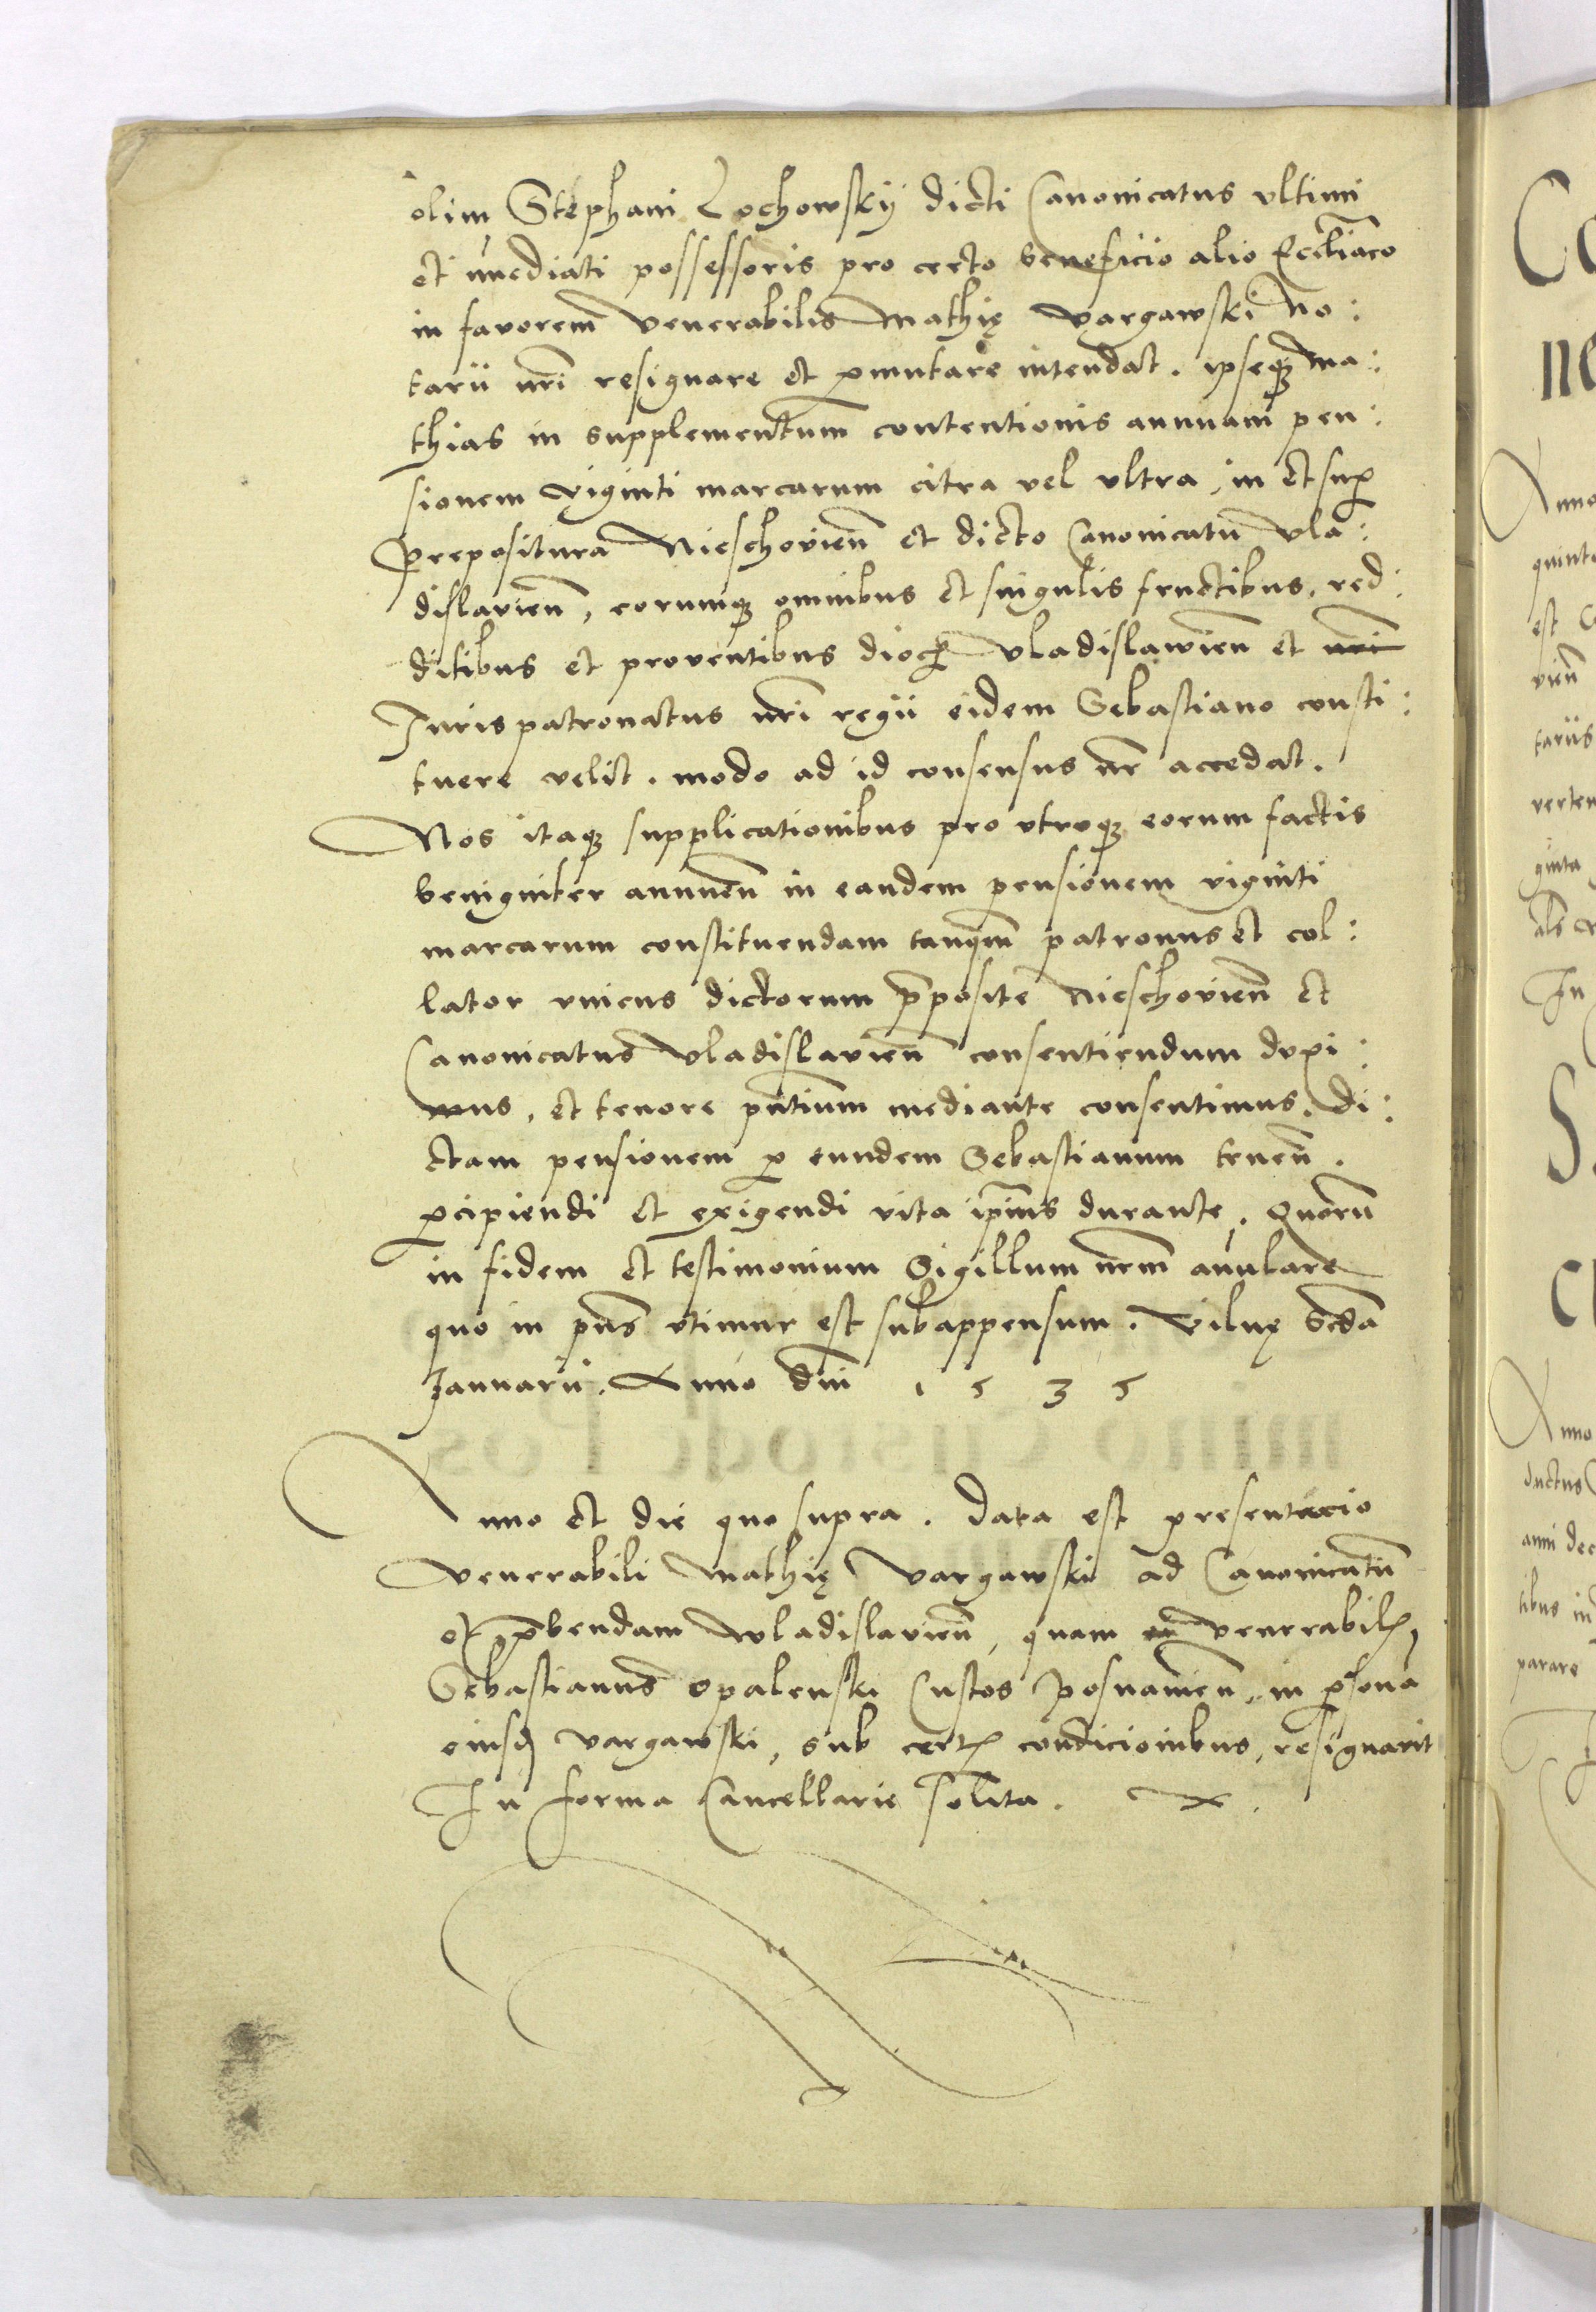 olim Stephani Lochowskij dicti Canonicatus ultimi
et imediati possessoris pro certo beneficio alio Ecclĩaco
in favorem Venerabilis Mathię Vargawski No:
tarii nrĩ resignare et ꝑmutare intendat. ipseqꝫ Ma:
thias in supplementum contentionis annuam pen:
sionem viginti marcarum citra vel ultra, in et suꝑ
Prepositura Nieschovieñ et dicto Canonicatu Vla:
dislavieñ, eorumqꝫ omnibus et singulis fructibus, red:
ditibus et proventibus dioc̃ Vladislawieñ et nrĩ
Jurispatronatus nrĩ regii eidem Sebastiano consti:
tuere velit. modo ad id consensus nr̃ accedat.
Nos itaqꝫ supplicationibus pro utroqꝫ eorum factis
benigniter annueñ in eandem pensionem viginti
marcarum constituendam tanqm̃ patronus et col:
lator unicus dictorum p̃posite Nieschovieñ et
Canonicatus Vladislavieñ consentiendum duxi:
mus, et tenore pñtium mediante consentimus. di:
ctam pensionem ꝑ eundem Sebastianum teneñ.
ꝑcipiendi et exigendi vita ip̃ius durante. Quorũ
in fidem et testimonium Sigillum nrm̃ anulare
quo in pñs utimur est subappensum. Vilnę Scdã
Januarii. Anno dñi 1535
Anno et die quo supra. Data est presentacio
Venerabili Mathię Vargawski ad Canonicatũ
et p̃bendam Wladislavieñ, quam Venerabilꝭ
Sebastianus Opalenski Custos Posnanieñ, in ꝑsona
eiusđ Vargawski, sub certꝭ condicionibus, resignavit
In forma Cancellarie solita.